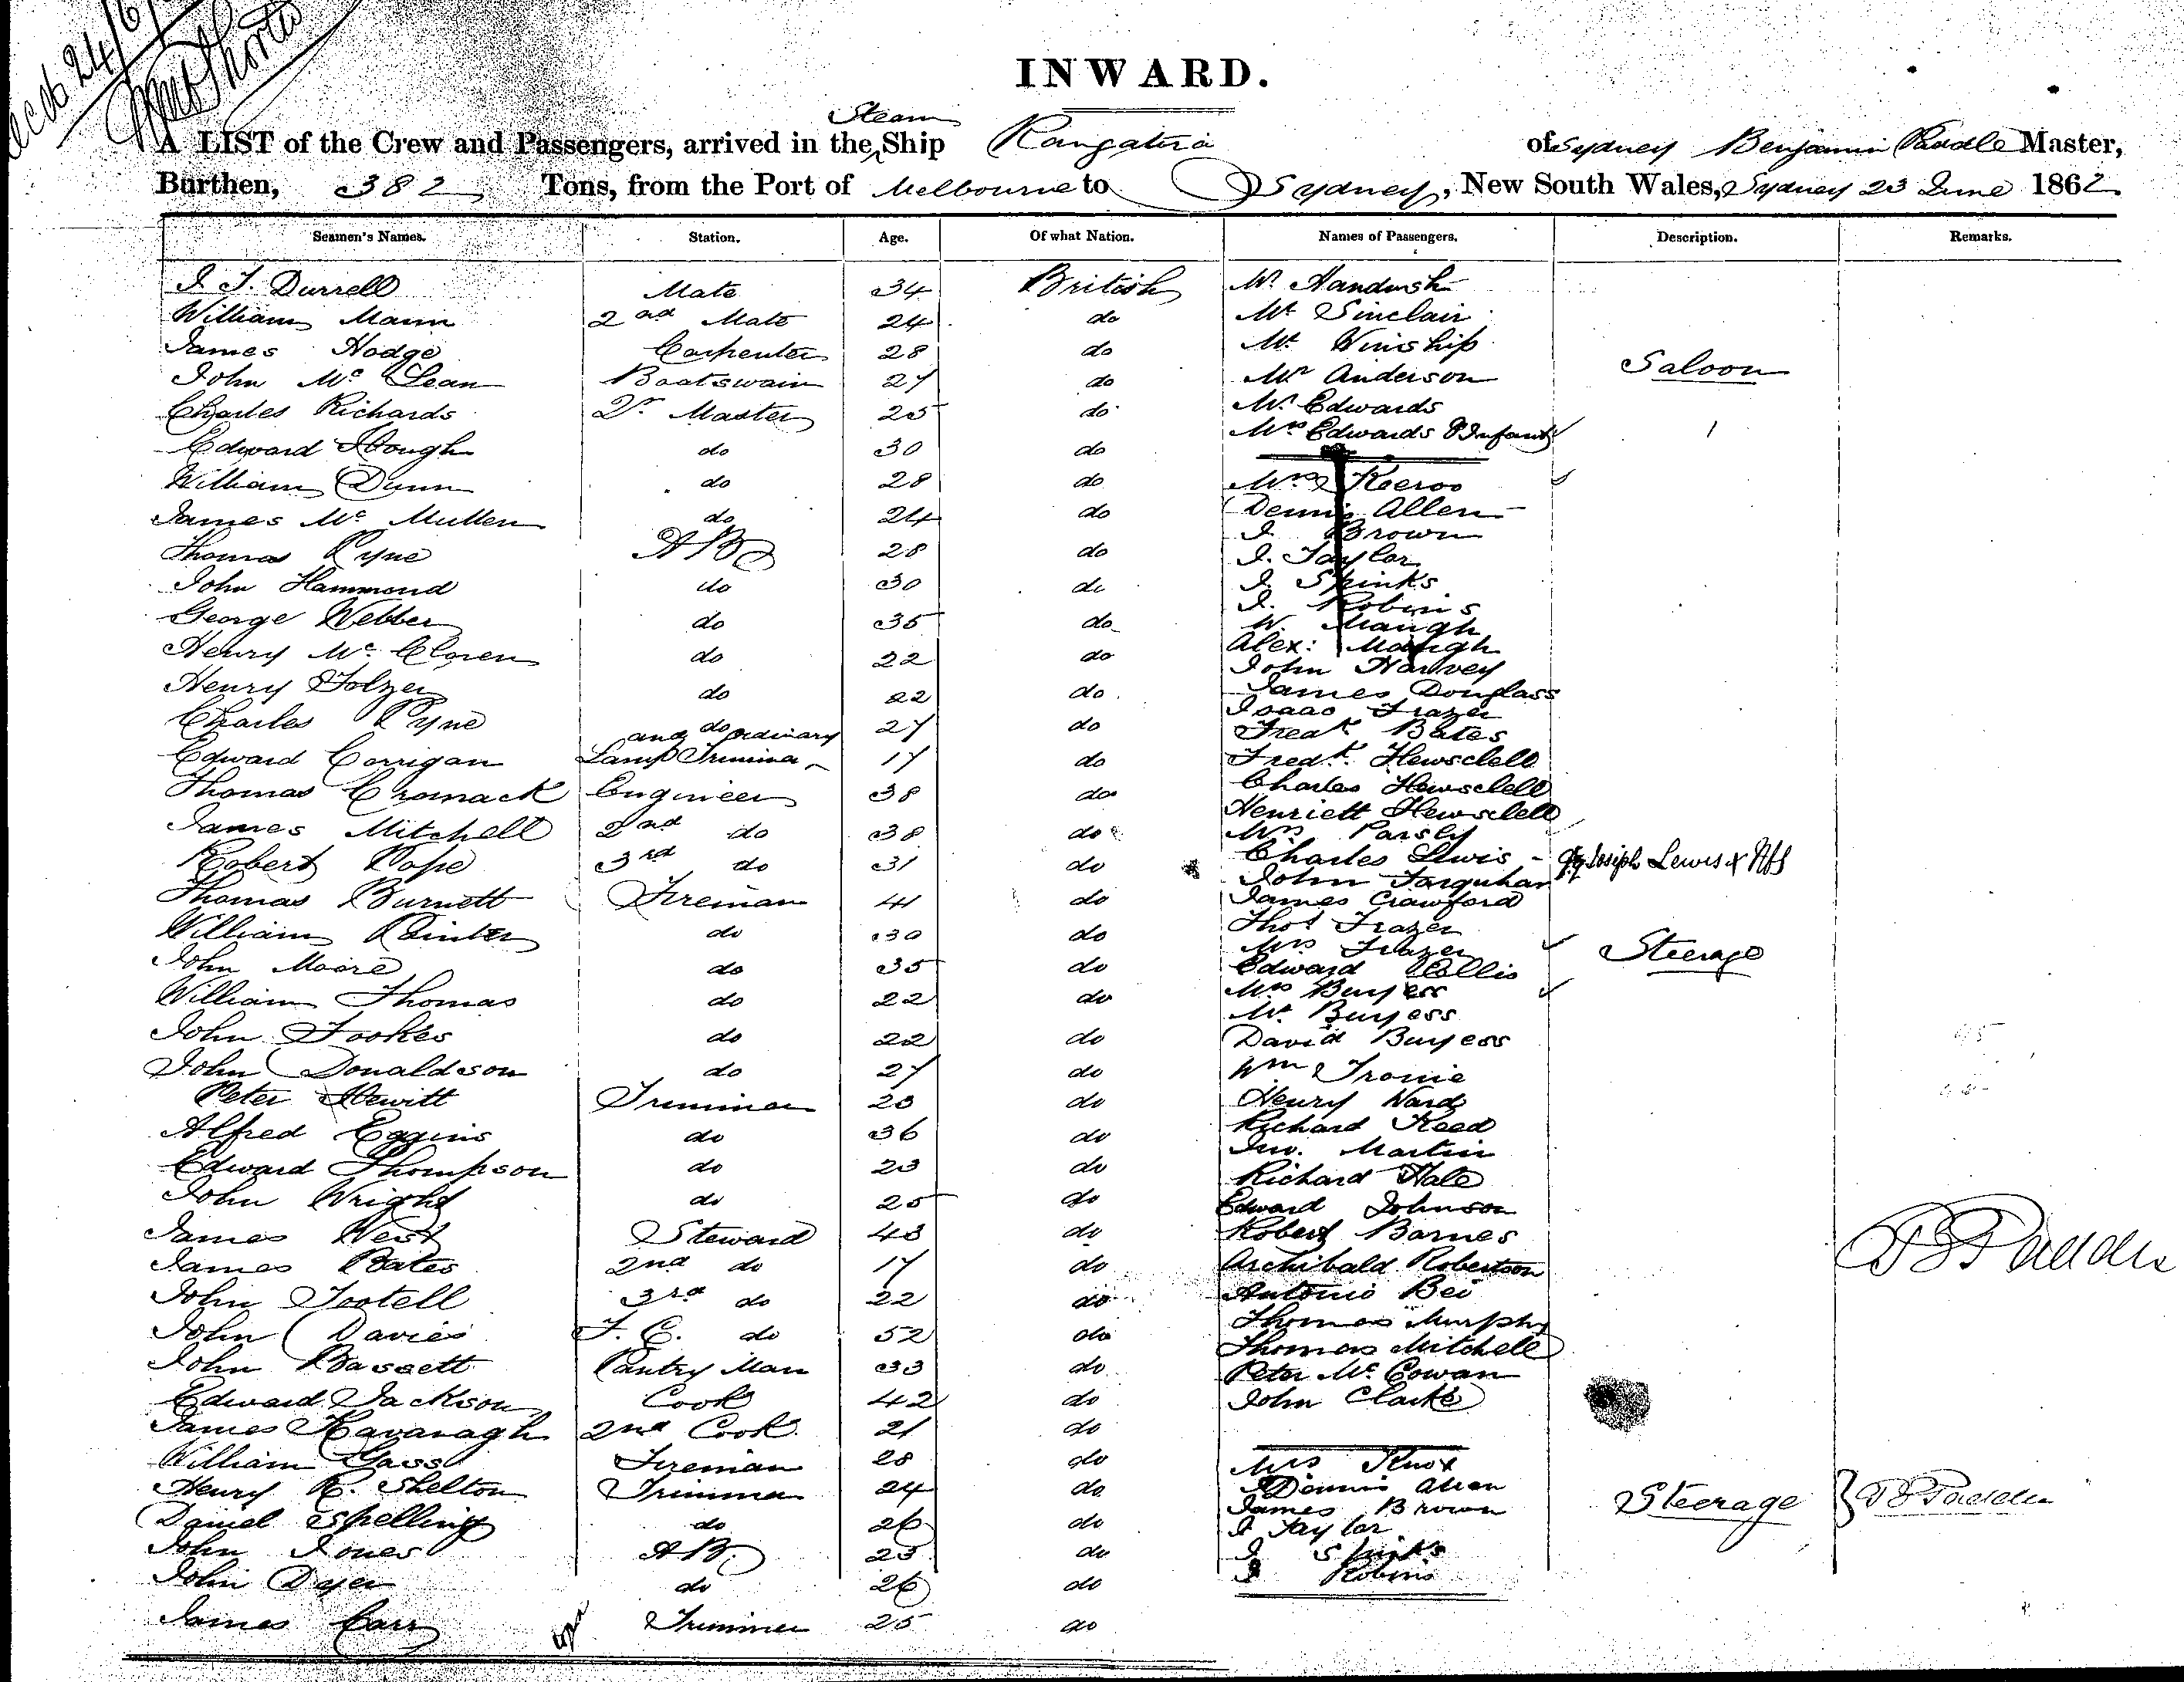 INWARD.
Steam
A LIST of the Crew and Passengers, arrived in the Ship Rangatira of Sydney Benjamin Paddle Master,
Burthen, 382 Tons, from the Port of Melbourne to Sydney, New South Wales, Sydney 23 June 1862
Seamen's Names. Station. Age. Of what Nation. Names of Passengers. Description. Remarks.
J. T. Durrell Mate 34 British
William Mann 2nd Mate 24 do Mr Sinclair
James Hodge Carpenter 28 do Mr Winship
John Mc Lean Boatswain 27 do Mr Anderson Saloon
Charles Richards Qr Master 25 do Mr Edwards
Edward Hough do 30 do Mrs Edwards & Infant 1
William Dunn do 28 do Mrs
James Mc Mullen do 24 do Dennis Allen
Thomas Pyne AB 28 do J Brown
J. Taylor
John Hammond do 30 do J. Spinks
J. Robins
George Webber do 35 do W. Maugh
Henry Mc Cloren do 22 do Alex: Maugh
John Harvey
Henry Holzer do 22 do James Douglass
Isaac Frazer
Charles Pyne do 27 do Fredk Bates
and ordinary
Edward Corrigan Lamp Trimmer 17 do Fredk. Hewsclell
Thomas Cromack Engineer 38 do Charles Hewsclell
Henriett Hewsclell
James Mitchell 2nd do 38 do Mrs Parsly
Robert Pope 3rd do 31 do Charles Lewis - Joseph Lewis
John Farquhar
Thomas Burnett Fireman 41 do James Crawford
Thos Frazer
William Painter do 30 do Mrs Frazer Steerage
John Moore do 35 do Edward Collis
William Thomas do 22 do Mrs Burgess
Mr Burgess
John Fookes do 22 do David Burgess
John Donaldson do 27 do Wm Tronie
Peter Hewitt Trimmer 23 do Henry Ward
Alfred Eggins do 36 do Richard Reed
Jno. Martin
Edward Thompson do 23 do Richard Hale
John Wright do 25 do Edward Johnson
James West Steward 43 do Robert Barnes
James Bates 2nd do 17 do Archibald Robertson
John Tootell 3rd do 22 do Antonio Bei
Thomas Murphy
John Davies F. C. do 52 do Thomas Mitchell
John Bassett Pantry Man 33 do Peter Mc Cowan
Edward Jackson Cook 42 do John Clarke
James Kavanagh 2nd Cook 21 do
William Gass Fireman 28 do Mrs Knox
Henry R. Shelton Trimmer 24 do Dennis Allen
James Brown Steerage
Daniel Spelling do 26 do J Taylor
John Jones AB. 23 do J Spinks
John Dyer do 26 do J Robins
James Carr Trimmer 25 do